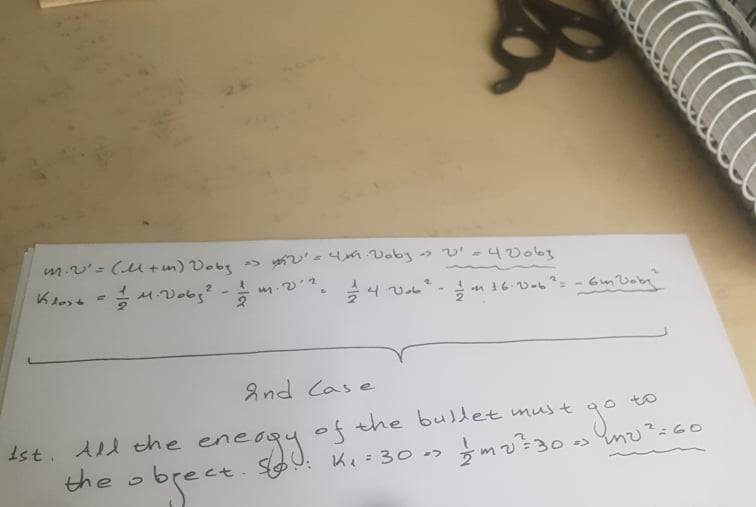 m·v' = (M+m) vobj => mv' = 4m·vobj => v' = 4vobj
Klost = 1/2 M·vobj² - 1/2 m·v'² = 1/2 4·vob² - 1/2 m 16·vob² = -6mvobj²
2nd Case
1st. All the energy of the bullet must go to
the object. So: K₁ = 30 => 1/2 mv² = 30 => mv² = 60